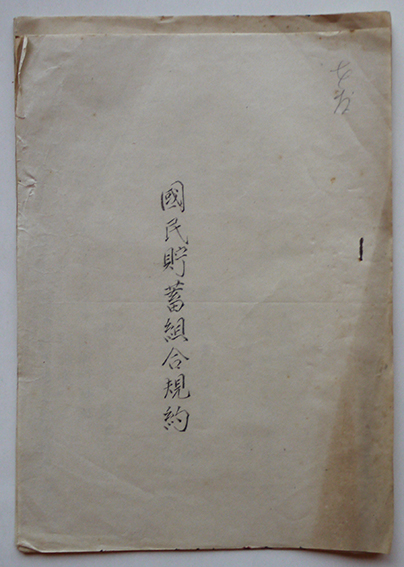 國民貯蓄組合規約